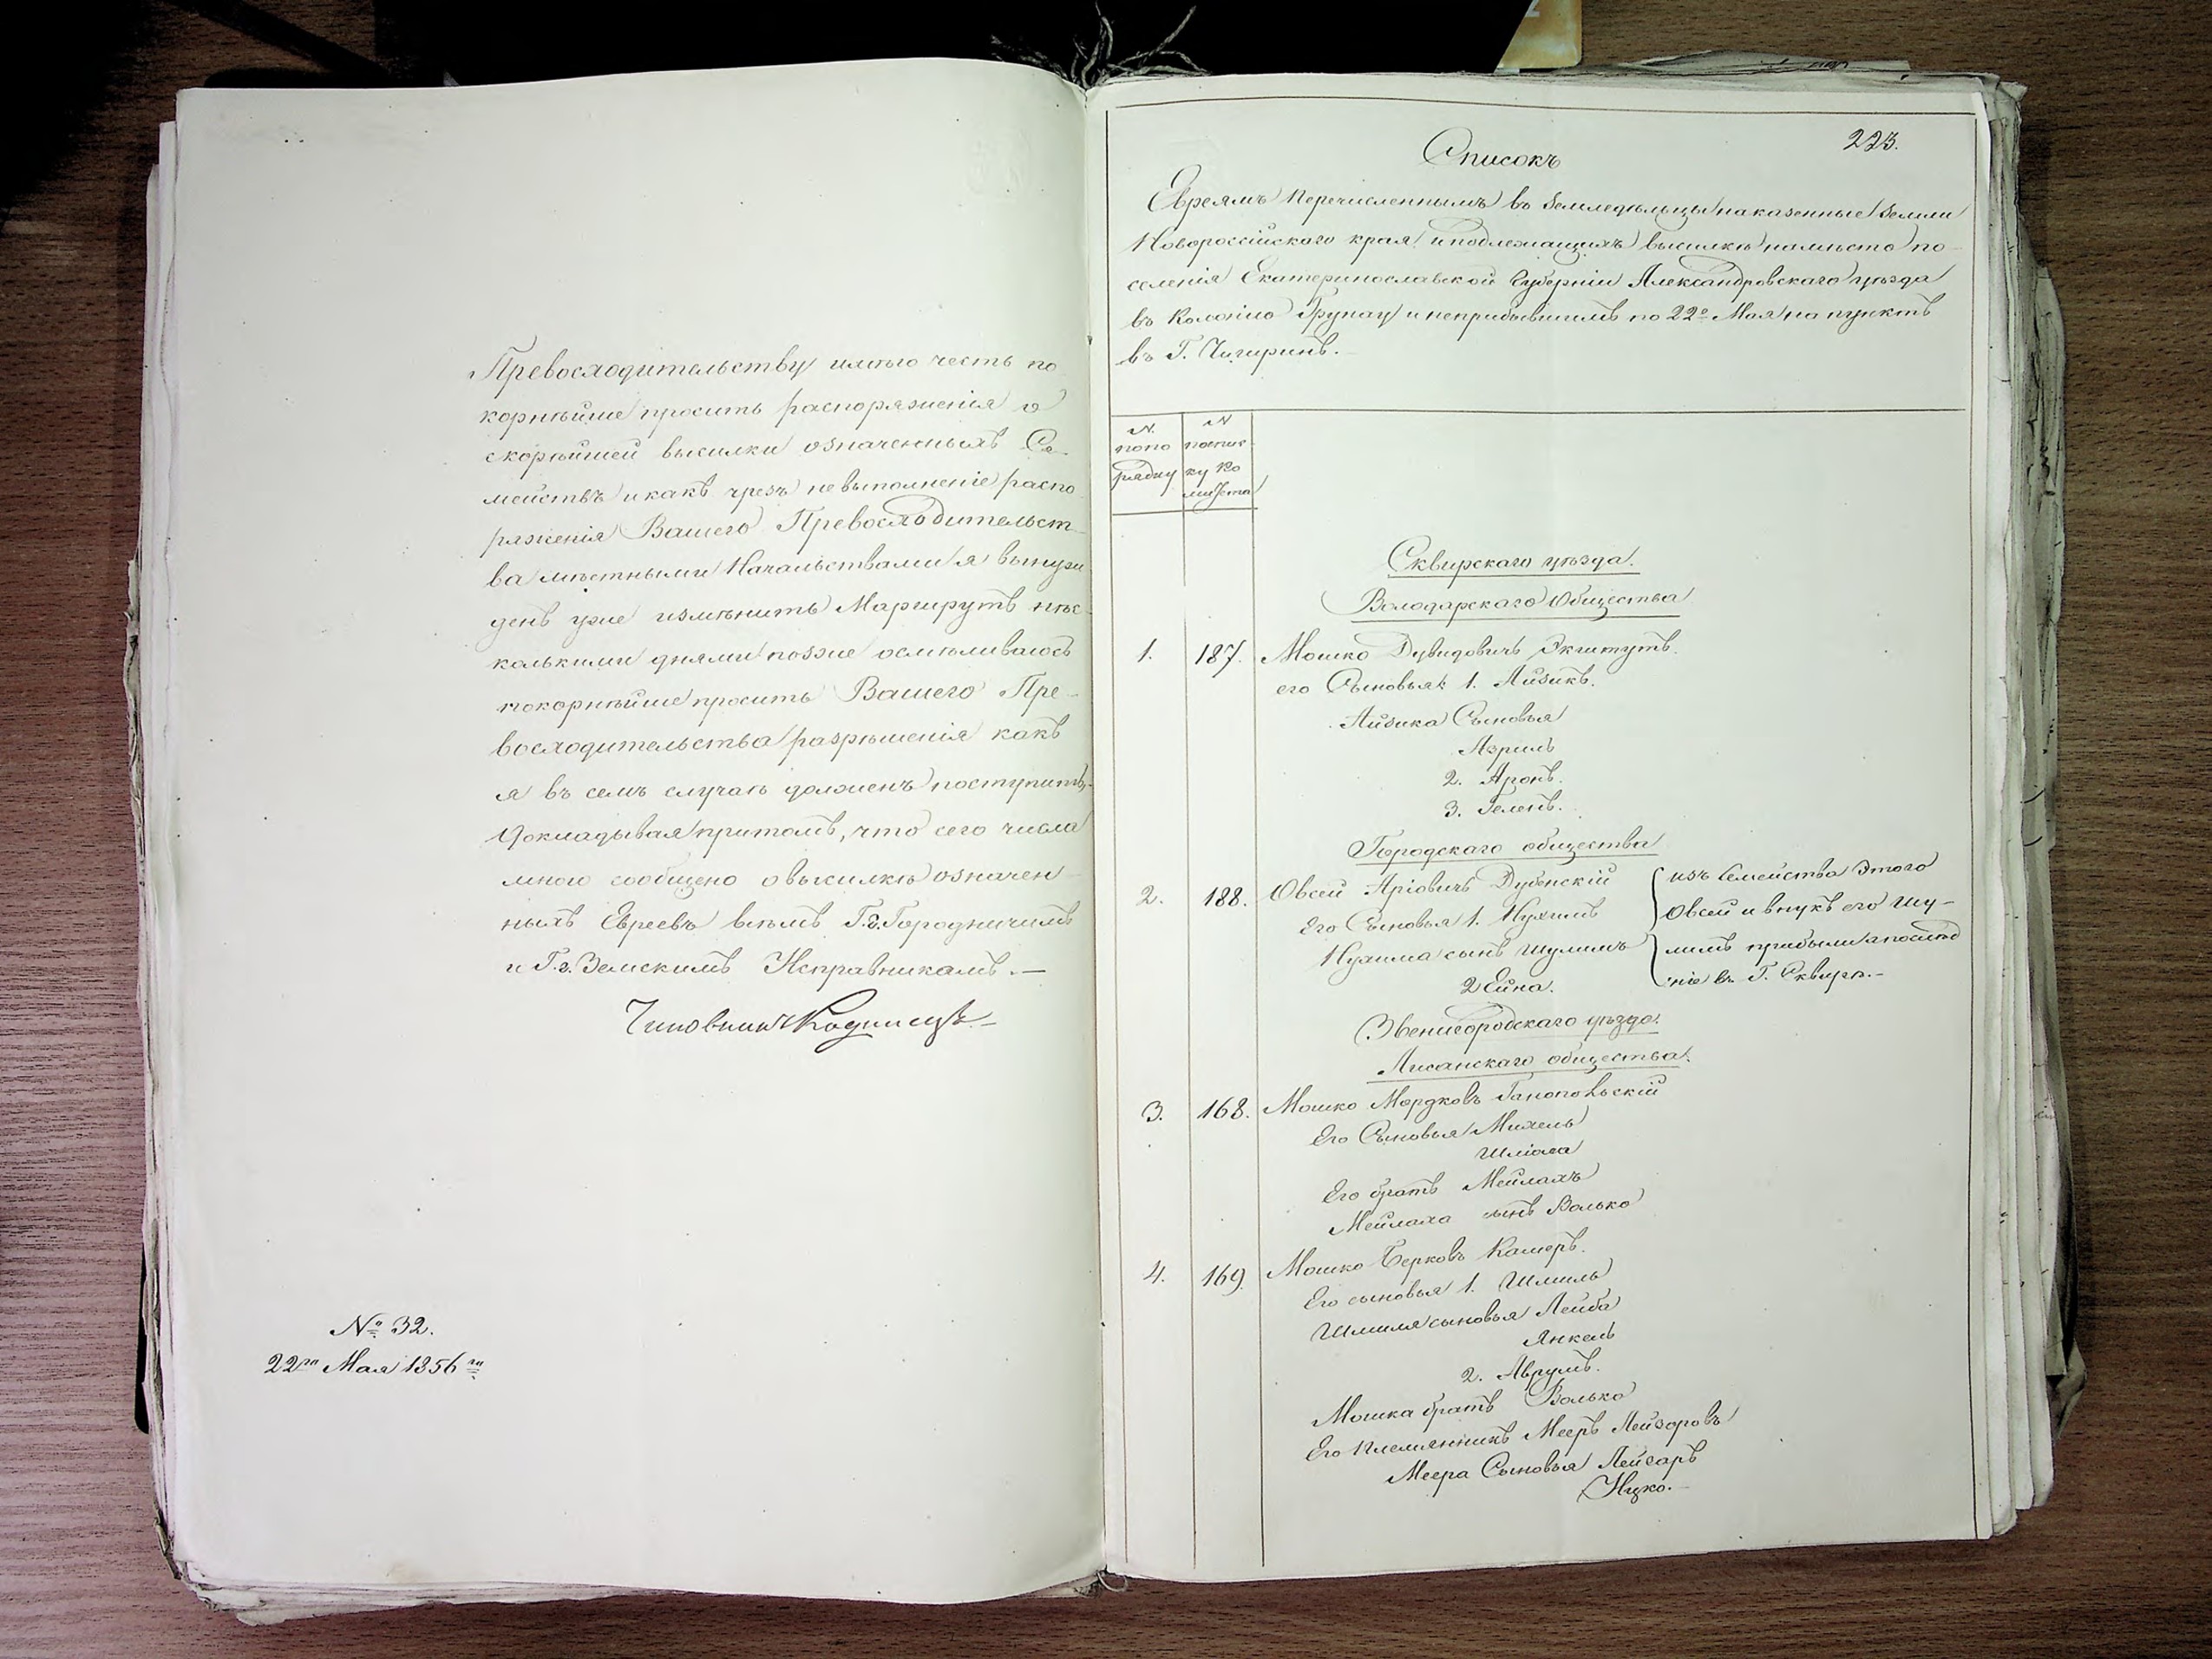 Превосходительству имѣю честь по
корнѣйше просить распоряженія о
скорѣйшей высилки означенныхъ Се-
мействъ и какъ чрезъ невыполненіе распо
ряженія Вашего Превосходительст-
ва мѣстными Начальствами я вынуж
денъ уже измѣнить Маршрутъ нѣс-
колькими днями позже осмѣливаюсь
покорнѣйше просить Вашего Пре-
восходительства разрѣшенія какъ
я въ семъ случаѣ долженъ поступить,
докладывая притомъ, что сего числа
мною сообщено о высилкѣ означен-
ныхъ Евреевъ всѣмъ Г.г. Городничимъ
и Г.г. Земскимъ Исправникамъ.—
Чиновникъ
№ 32.
22го Мая 1856 го
223.
Списокъ
Евреямъ перечисленнымъ въ Земледѣльцы на казенные Земли
Новороссійскаго края и подлежащихъ высилкѣ на мѣсто по-
селенія Екатеринославской Губерніи Александровскаго уѣзда
въ Колонію Грунау и неприбывшимъ по 22е Мая на пунктъ
въ Г. Чигиринъ.—
№ попо рядку
№ поспис ку Ко митета
Сквирскаго уѣзда.
Володарскаго Общества
1. 187. Мошко Дувидовичъ Экштутъ.
его Сыновья: 1. Айзикъ.
Айзика Сыновья
Азриль
2. Аронъ.
3. Геленъ.
Городскаго общества
2. 188. Овсей Аріовичъ Дубенскій
Его Сыновья 1. Нухимъ
Нухима сынъ Шулимъ
2 Ейна.
изъ Семейства этого
Овсей и внукъ его Шу-
лимъ прибыли а послѣд
ніе въ Г. Сквирѣ.—
Звенигородскаго уѣзда.
Лисанскаго общества.
3. 168. Мошко Мордковъ Ганопольскій
Его Сыновья Михель
Шліома
Его братъ Мейлахъ
Мейлаха сынъ Волько
4. 169. Мошко Берковъ Кашеръ.
Его сыновья 1. Шмиль
Шмиля сыновья Лейба
Янкель
2. Аврумъ.
Мошка братъ Волько
Его Племянникъ Мееръ Лейзоровъ
Меера Сыновья Лейзаръ
Ицко.—